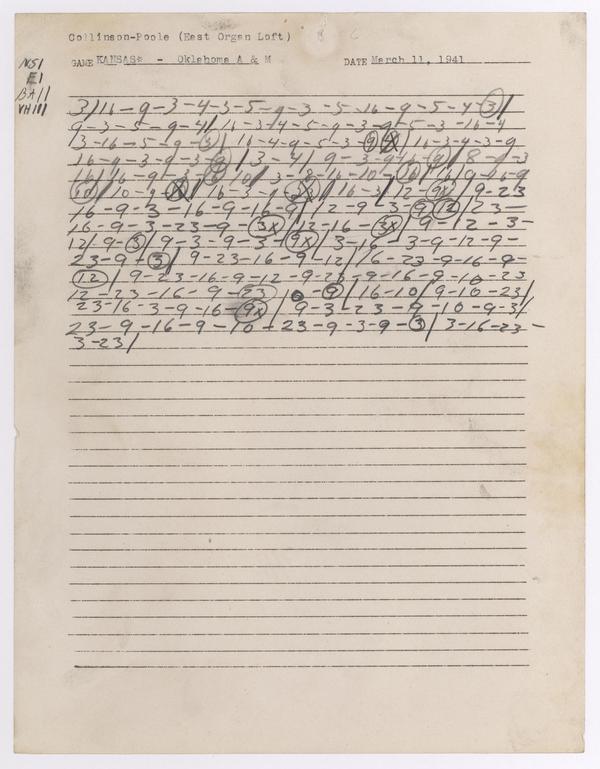 Collinson-Poole (East Organ Loft)
GAME KANSAS* - Oklahoma A & M DATE March 11, 1941
NS1
E1
BA11
VH111
3/16-9-3-4-3-5-9-3-5-16-9-5-4-3/
9-3-5-9-4/16-3-4-5-9-3-9-5-3-16-4
3-16-5-9-3/16-4-9-5-3-9 /16-3-4-3-9
16-9-3-9-3-9/3-4/9-3-9-16-9/8-9-3
16/16-9-3- /10/3- -16-10- /16/9-16-9
10/10-9- /16-3- - /16-3/12-9X/9-23
16-9-3-16-9-16-9/12-9-3-9 12/23-
16-9-3-23-9-3X/12-16-3X/9-12-3-
12/9-3/9-3-9-3-9X/3-16-3-9-12-9-
23-9-3/9-23-16-9-12/16-23-9-16-9-
12/9-23-16-9-12-9-23-9-16-9-10-23
12-23-16-9-23/ -9/16-10/9-10-23/
23-16-3-9-16-9X/9-3-23-9-10-9-3/
23-9-16-9-10-23-9-3-9-3/3-16-23-
3-23/